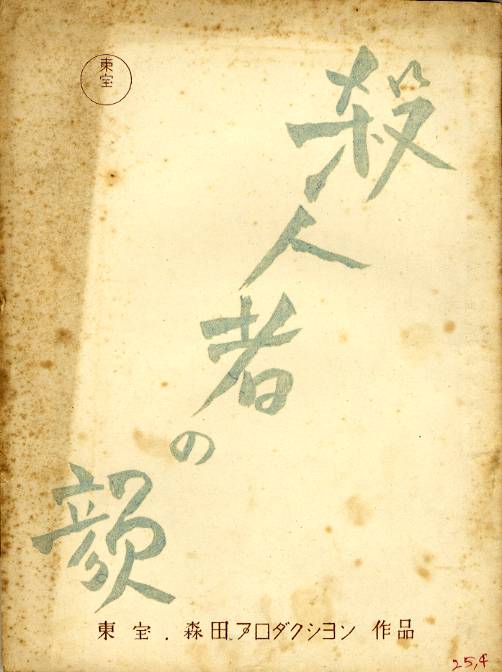 東宝
殺人者の顔
東宝．森田プロダクシヨン 作品
25,4